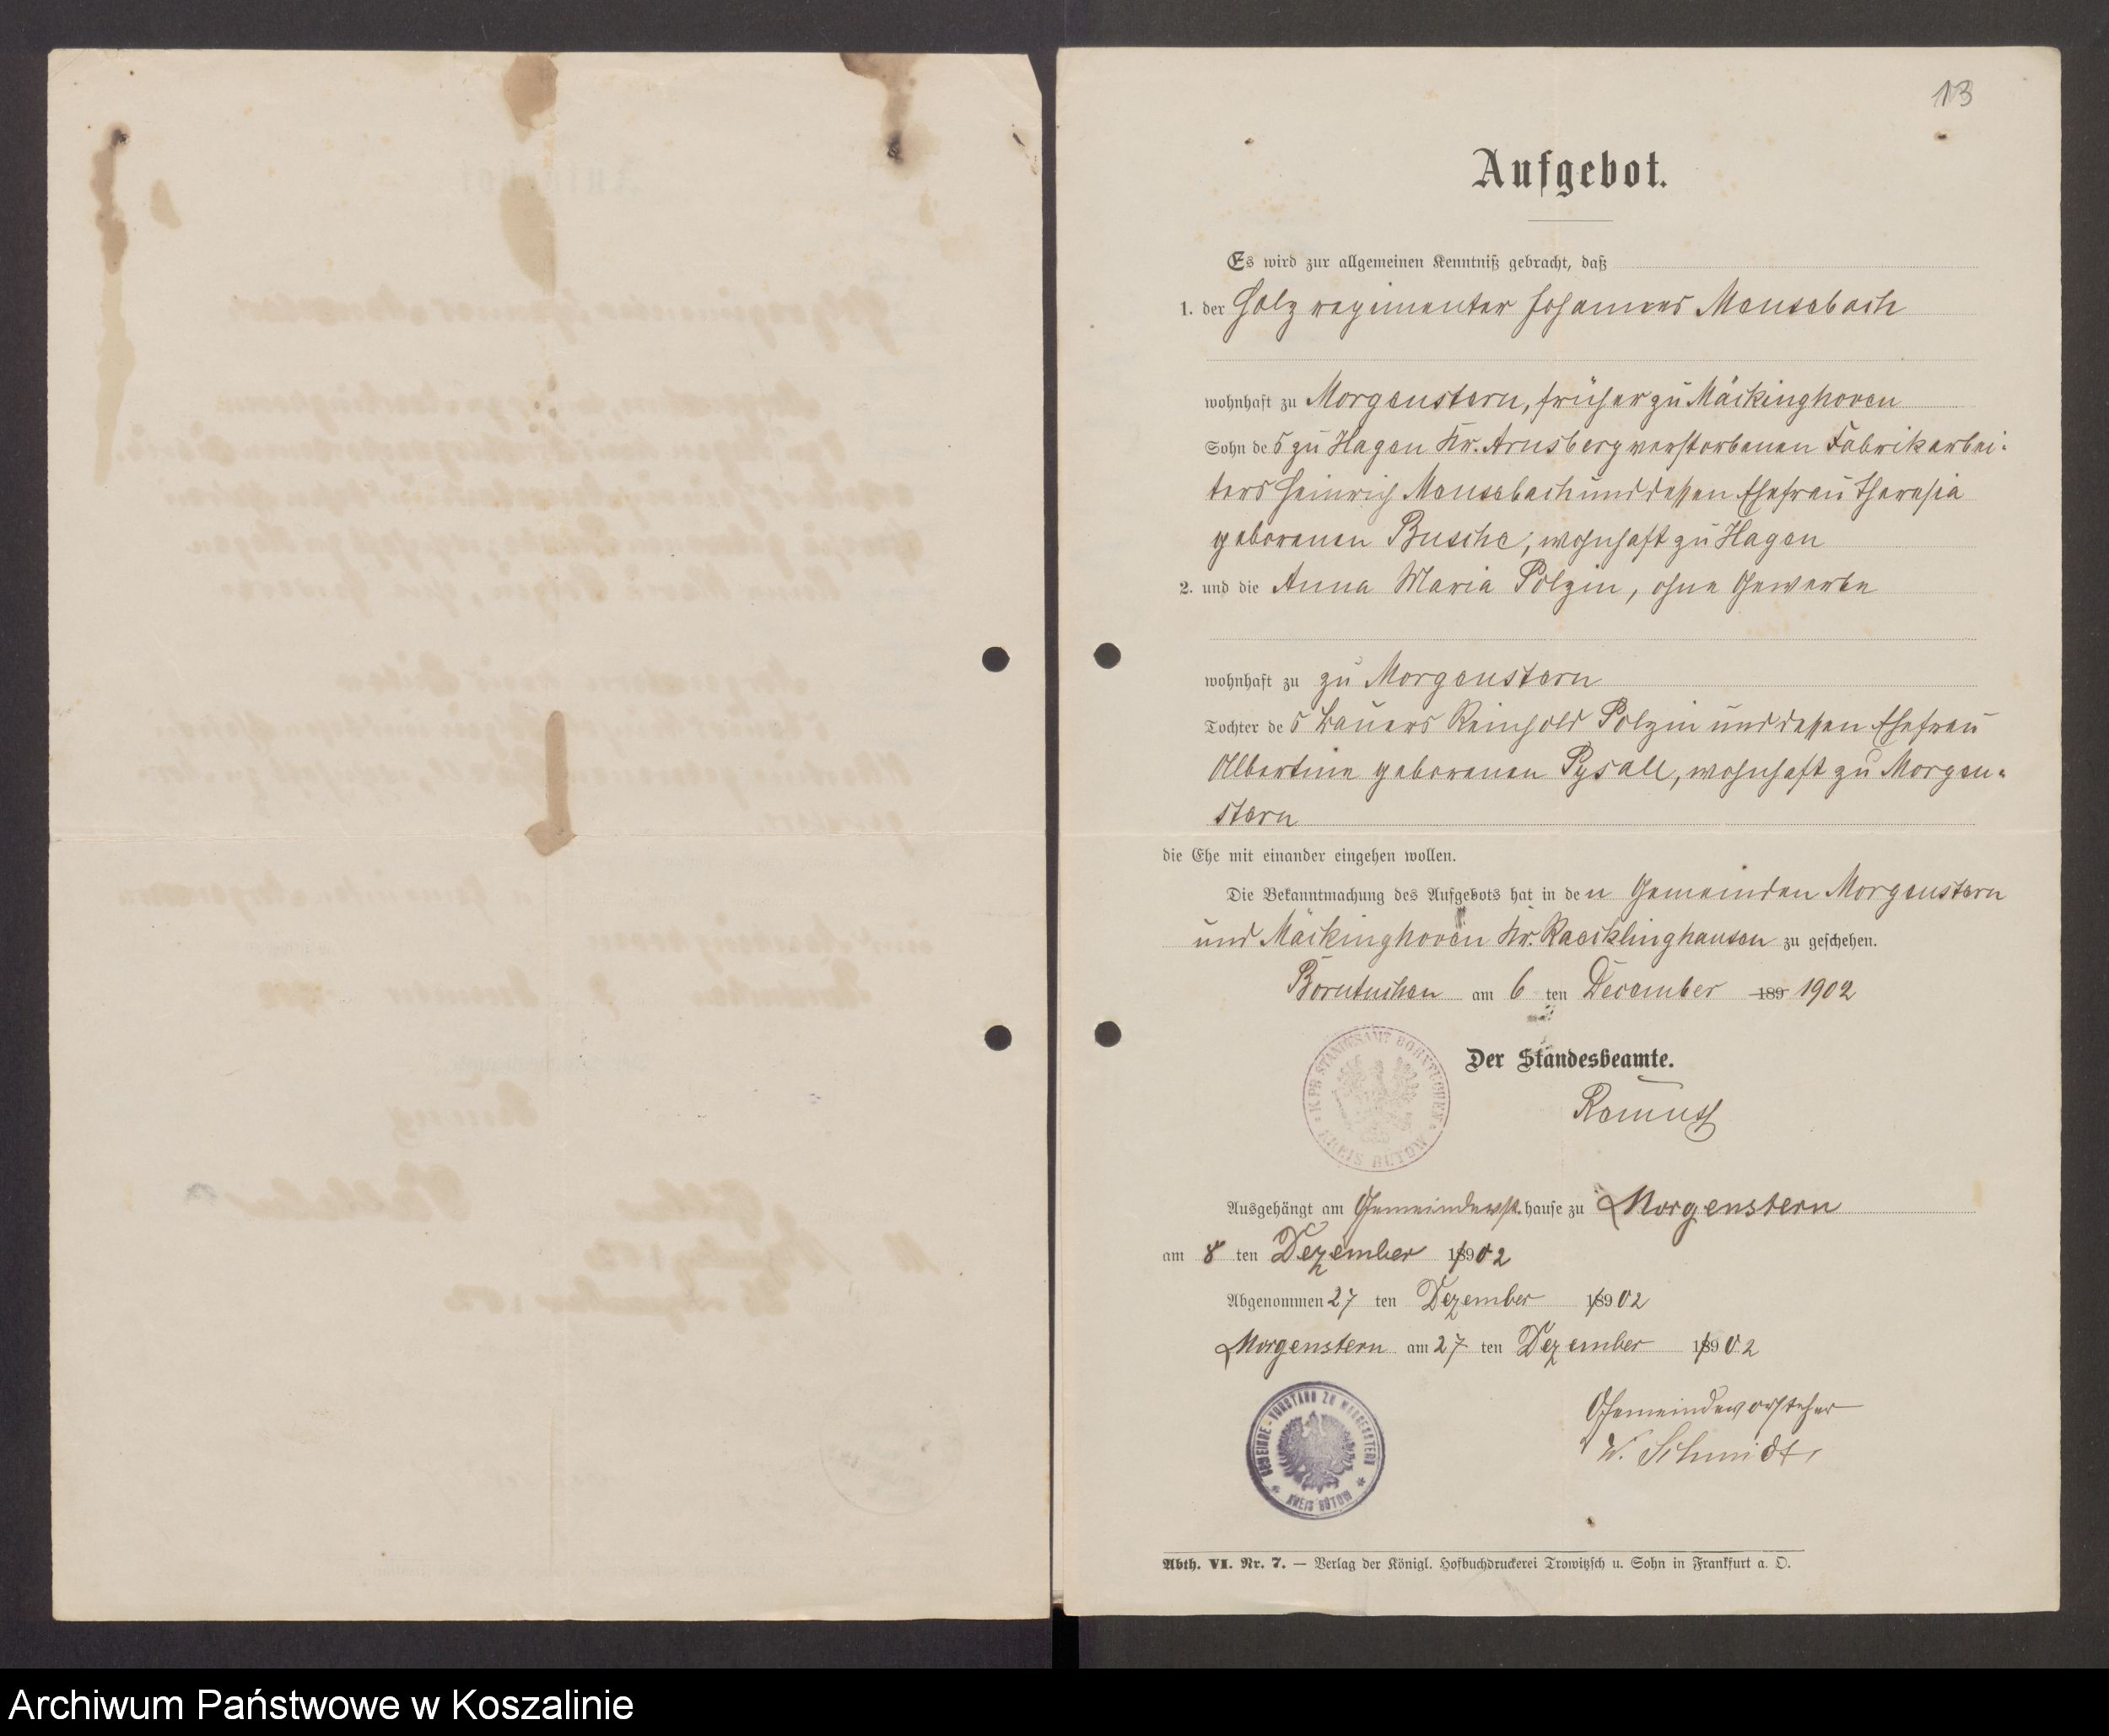 13
Aufgebot.
Es wird zur allgemeinen Kenntniß gebracht, daß
1. der Holzregimenter Johannes Mensebach
wohnhaft zu Morgenstern, früher zu Mäckinghoven
Sohn des zu Hagen Kr. Arnsberg verstorbenen Fabrikarbei-
ters Heinrich Mensebach und dessen Ehefrau Theresia
geborenen Busche, wohnhaft zu Hagen
2. und die Anna Maria Polzin, ohne Gewerbe
wohnhaft zu zu Morgenstern
Tochter des Bauers Reinhold Polzin und dessen Ehefrau
Albertine geborenen Pysall, wohnhaft zu Morgen-
stern
die Ehe mit einander eingehen wollen.
Die Bekanntmachung des Aufgebots hat in den Gemeinden Morgenstern
und Mäckinghoven Kr. Raecklinghausen zu geschehen.
Borntuchen am 6 ten December 189 1902
KPR STANDESAMT BORNTUCHEN
KREIS BÜTOW
Der Standesbeamte.
Ausgehängt am Gemeindevst. hause zu Morgenstern
am 8 ten Dezember 18902
Abgenommen 27 ten Dezember 18902
Morgenstern am 27 ten Dezember 18902
GEMEINDE-VORSTAND ZU MORGENSTERN
KREIS BÜTOW
Gemeindevorsteher
W. Schmidt
Abth. VI. Nr. 7. — Verlag der Königl. Hofbuchdruckerei Trowitzsch u. Sohn in Frankfurt a. O.
Archiwum Państwowe w Koszalinie